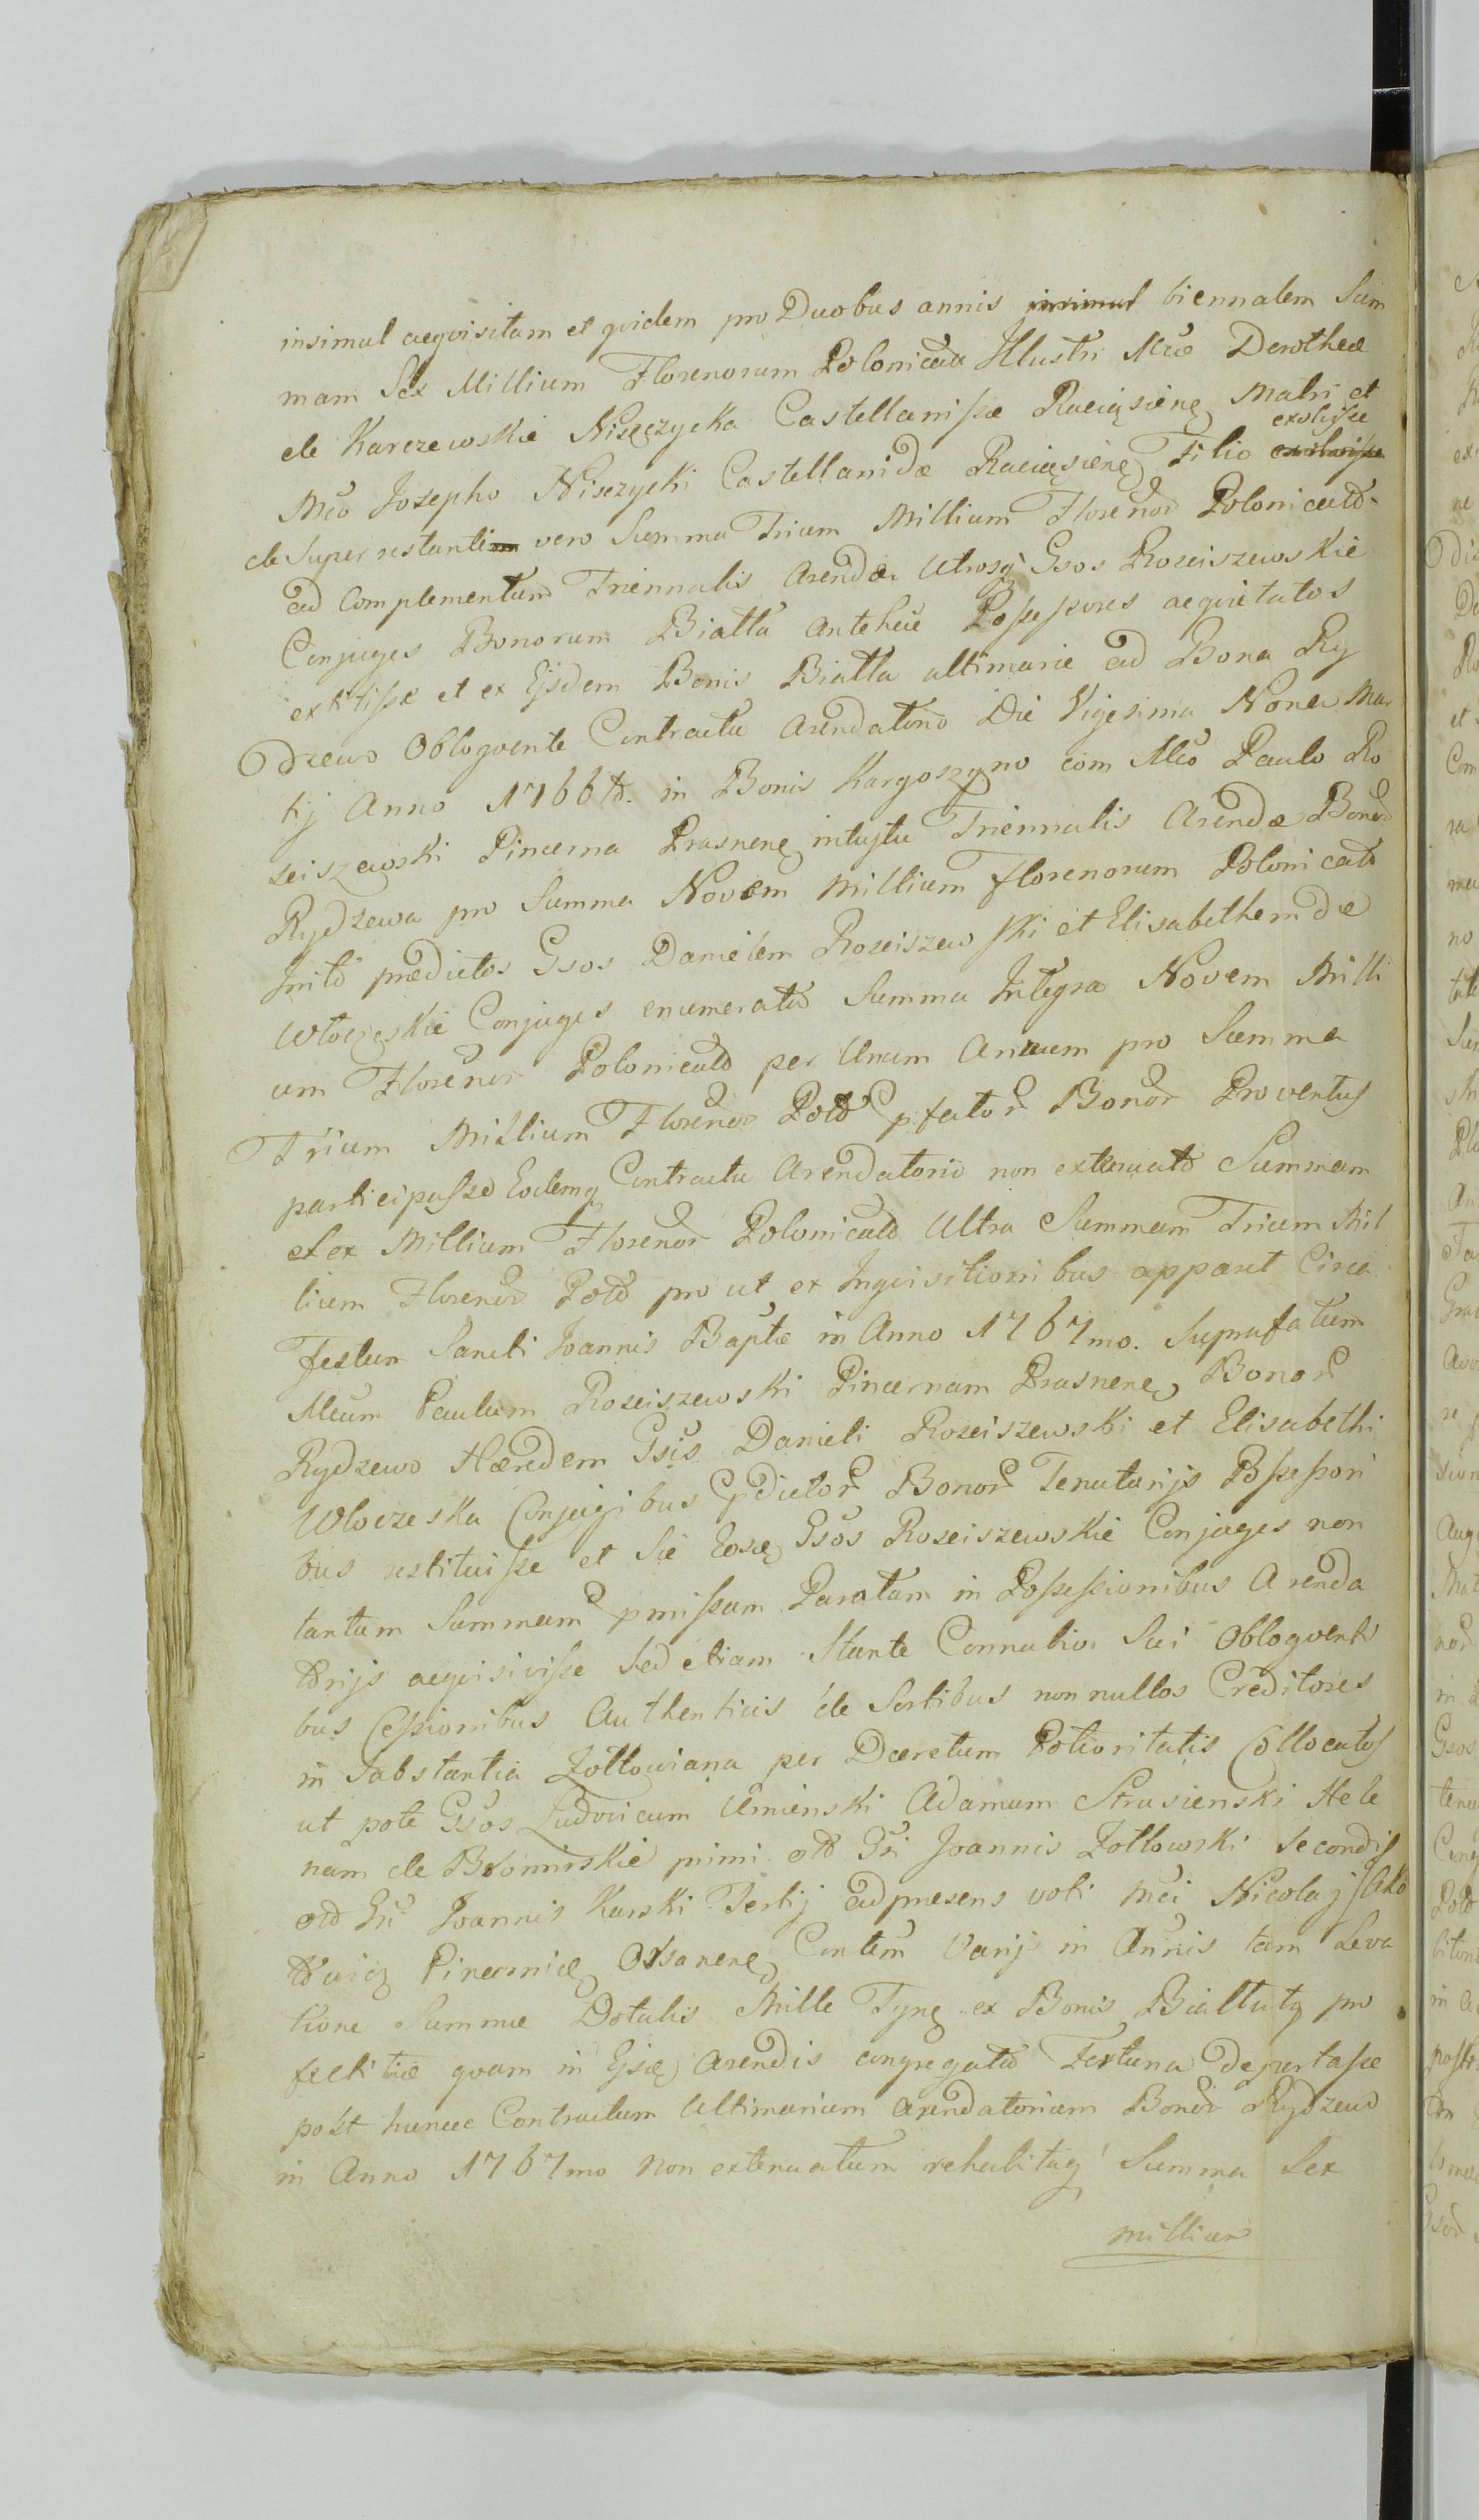 insimul aeqvisitam et qvidem pro Duobus annis insimul biennalem Sum
mam Sex Millium Florenorum Polonical Illustri Mcae Dorotheae
de Karczewskie Nisczycka Castellanissae Raciąsieng Matri et
exolvisse
Mco Josepho Nisczycki Castellanidae Raciąsieng Filio
de Super restanti vero Summa Trium Millium Florenor Polonical
ad Complementum Triennalis Arendae Utrosq Gsos Rosciszewskie
Conjuges Bonorum Białła antehac Possessores aeqvietatos
extitisse et ex Ejsdem Bonis Białła ultimarie ad Bona Ry
dzewo Obloqvente Contractu Arendatorio Die Vigesima Nona Mar
tij Anno 1766to. in Bonis Kargoszyno cum Mco Paulo Ro
sciszewski Pincerna Prasneng intujtu Triennalis Arendae Bonor
Rydzewa pro Summa Novem Millium florenorum Polonical
Inito praedictos Gsos Danielem Rosciszewski et Elisabetham de
Włoczeskie Conjuges enumerata Summa Integra Novem Milli
um Florenor Polonical per Unum Annum pro Summa
Trium Millium Florenor Pol pfator Bonor Proventus
participasse Eodemq Contractu Arendatorio non extenuato Summam
Sex Millium Florenor Polonical Ultra Summam Trium Mil
lium Florenor Pol pro ut ex Inqvisitionibus apparet Circa
festum Sancti Joannis Baptae in Anno 1767mo. Suprafatum
Mcum Paulum Rosciszewski Pincernam Prasneng Bonor
Rydzewo Haeredem Gsis Danieli Rosciszewski et Elisabethi
Włoczeska Conjugibus pdictor Bonor Tenutarijs Possessori
bus restituisse et Sic Eosq Gsos Rosciszewskie Conjuges non
tantum Summam pmissam Paratam in Possessionibus Arenda
torijs aeqvisivisse Sed etiam Stante Connubio Sui Obloqventi
bus Cessionibus Authenticis de Sortibus nonnullos Creditores
in Substantia Zołłowiana per Decretum Potioritatis Collocatos
ut pote Gsos Ludovicum Uminski Adamum Strusienski Hele
nam de Bromirskie primi olo Gsi Joannis Zołłowski Secondis
olo Gsi Joannis Karski Tertij ad praesens voti Mci Nicolaj
Pincernic Contem Varijs in Annis tam Leva
tione Summae Dotalis Mille Tynf ex Bonis Białłutg pro
fectitiae qvam in Ejsq Arendis congregata Fortuna deportasse
post huncce Contractum Ultimarium Arendatorium Bonor Rydzewo
in Anno 1767mo non extenuatum rehabitaq Summa Sex
millium